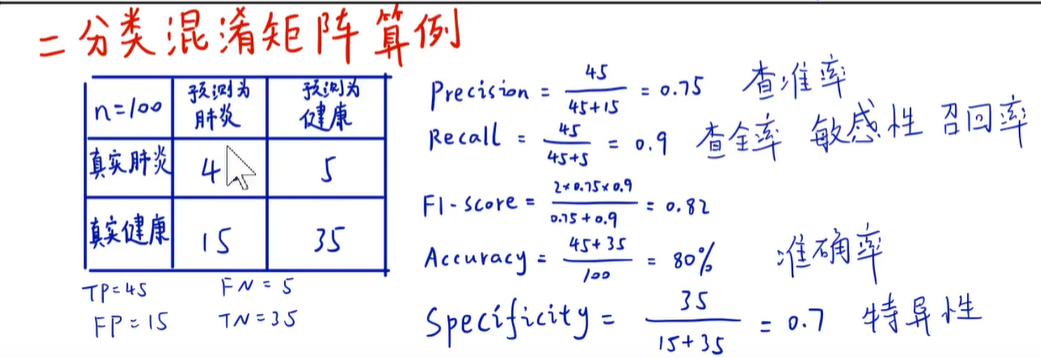 二分类混淆矩阵算例
n=100 预测为肺炎 预测为健康
真实肺炎 4 5
真实健康 15 35
TP=45 FN=5
FP=15 TN=35
Precision = 45/(45+15) = 0.75 查准率
Recall = 45/(45+5) = 0.9 查全率 敏感性 召回率
F1-score = 2×0.75×0.9/(0.75+0.9) = 0.82
Accuracy = (45+35)/100 = 80% 准确率
Specificity = 35/(15+35) = 0.7 特异性